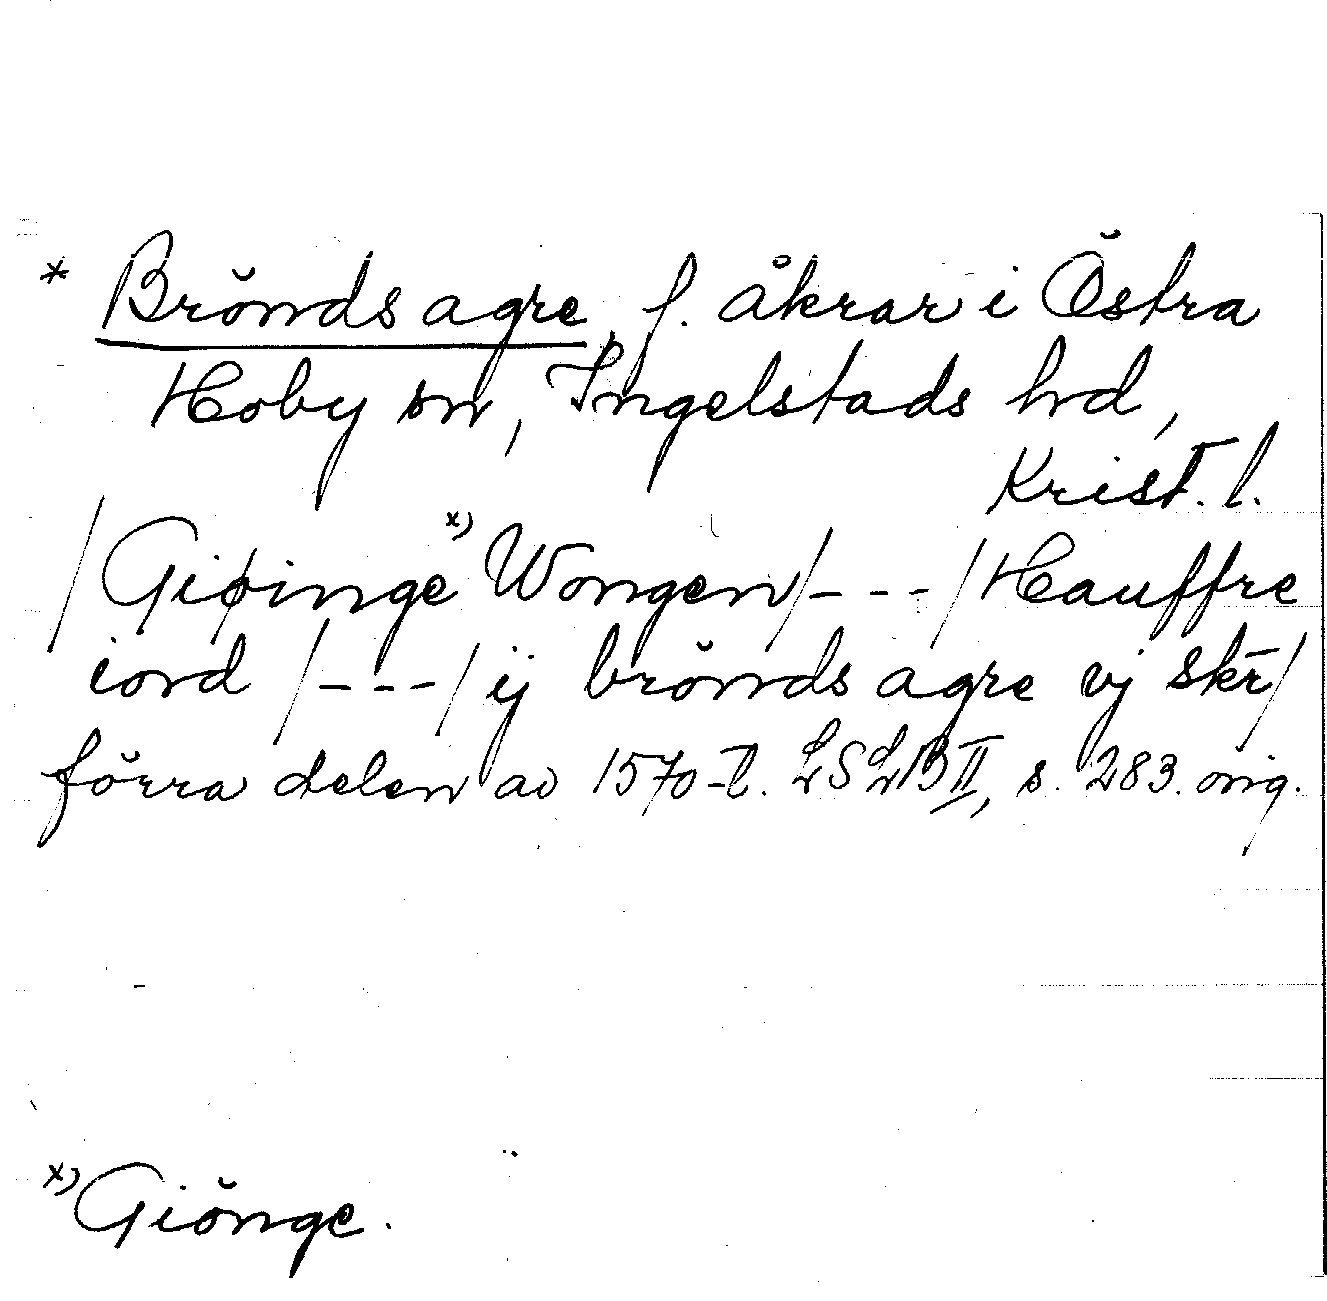 * Brönds agre, f. åkrar i Östra
Hoby sn, Ingelstads hrd,
Krist. l.
/Giøinge x) Wongen/---/Hauffre
iord /---/ ij brönds agre vj skr/
förra delen av 1570-t. LSLB II, s. 283. orig.
x) Giönge.